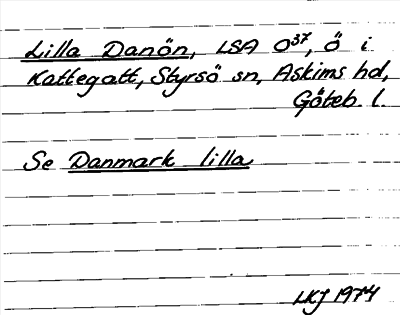 Lilla Danön, LSA O³⁷, ö i
Kattegatt, Styrsö sn, Askims hd,
Göteb. l.
Se Danmark lilla
LKJ 1974